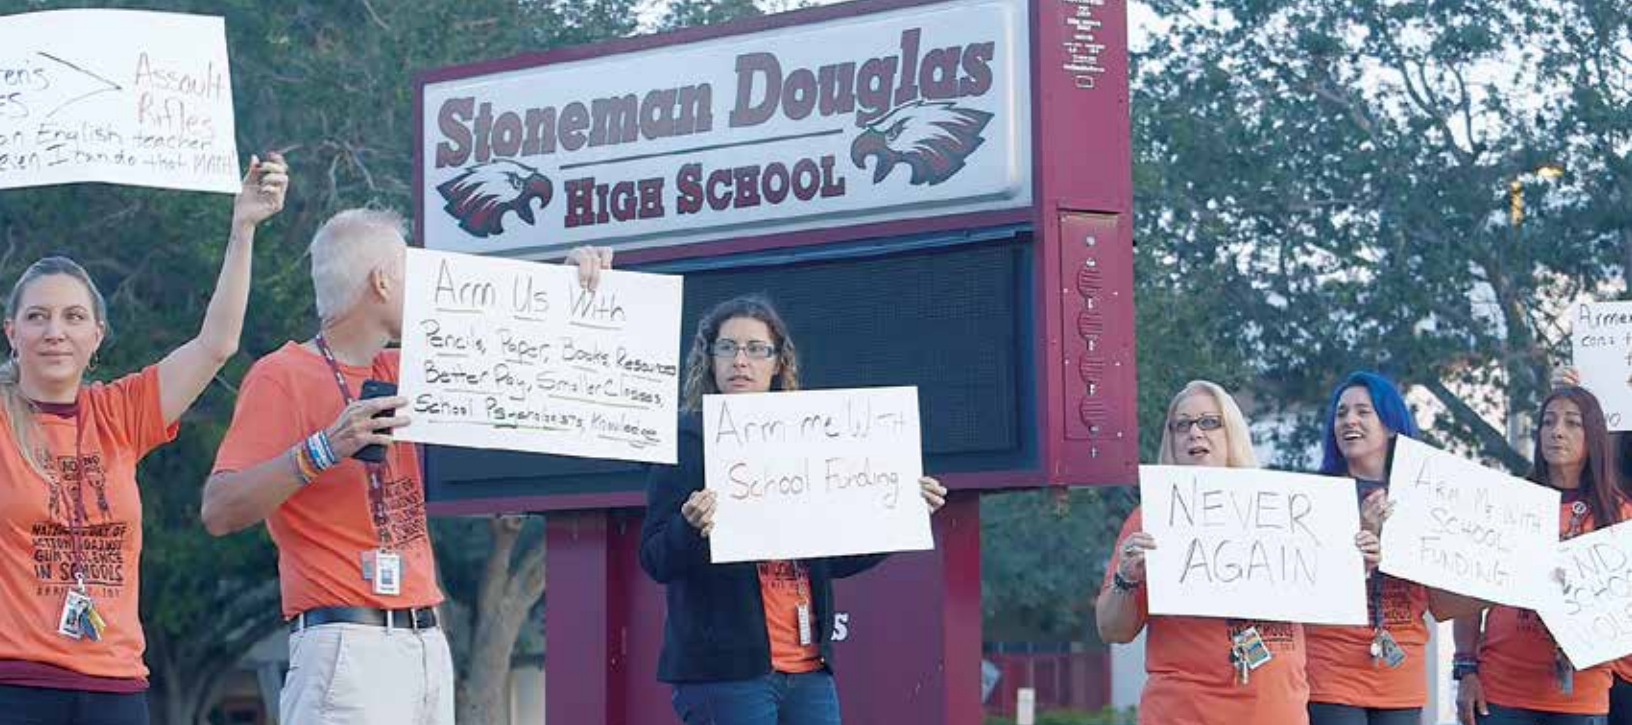 Assault
Rifles
English teacher
even I can do that MATH
Stoneman Douglas
HIGH SCHOOL
Arm Us With
Pencils, Paper, Books, Resources
Better Pay, Smaller Classes,
School Psychologists, Knowledge
Arm me With
School Funding
NEVER
AGAIN
ARM ME WITH
SCHOOL
FUNDING
NATIONAL DAY OF
ACTION AGAINST
GUN VIOLENCE
IN SCHOOLS